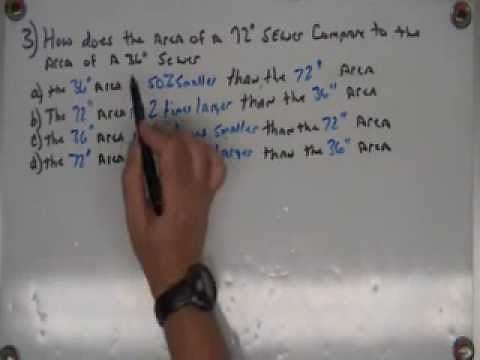 3) How does the Area of a 72" Sewer Compare to the
Area of A 36" Sewer
a) the 36" Area 50% smaller than the 72" Area
b) The 72" Area 2 times larger than the 36" Area
c) the 36" Area smaller than the 72" Area
d) the 72" Area larger than the 36" Area